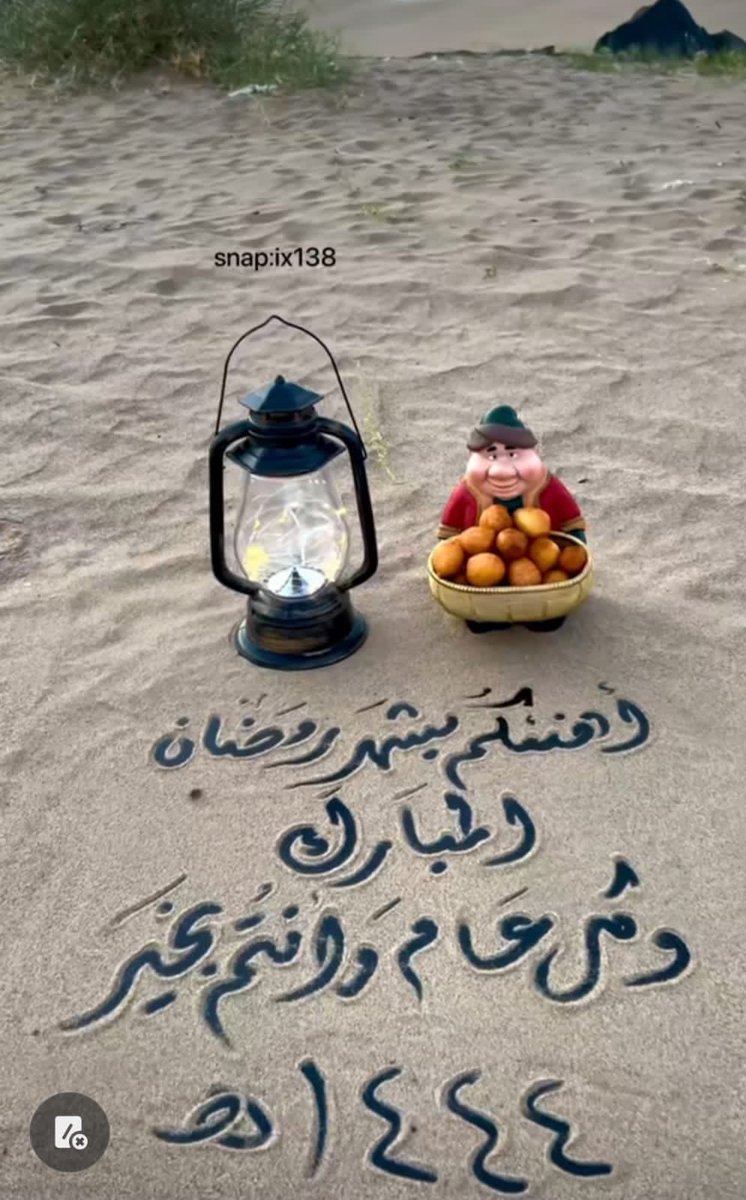 snap:ix138
أهنئكم بشهر رمضان
المبارك
وكل عام وأنتم بخير
١٤٤٤هـ